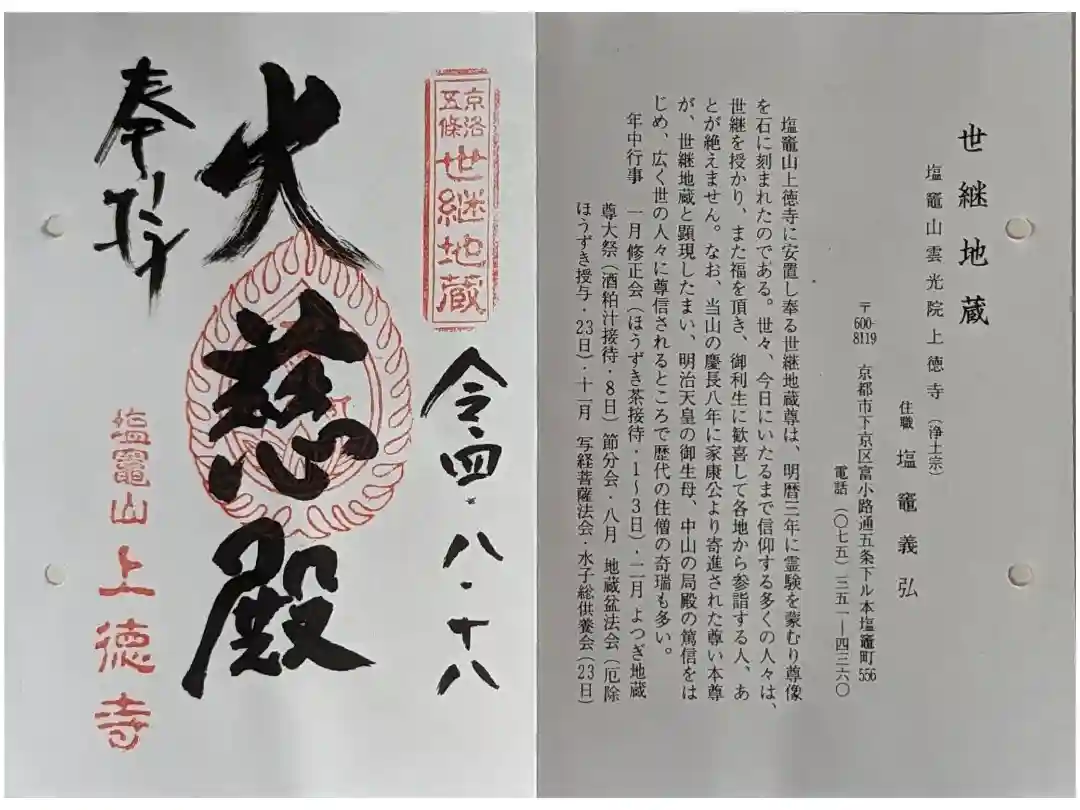 奉拝
京洛
五條
世継地蔵
大慈殿
令四・八・十八
塩竈山
上徳寺
世継地蔵
塩竈山雲光院上徳寺(浄土宗)
住職 塩竈義弘
〒600-8119 京都市下京区富小路通五条下ル本塩竈町556
電話(〇七五)三五一―四三六〇
塩竈山上徳寺に安置し奉る世継地蔵尊は、明暦三年に霊験を蒙むり尊像
を石に刻まれたのである。世々、今日にいたるまで信仰する多くの人々は、
世継を授かり、また福を頂き、御利生に歓喜して各地から参詣する人、あ
とが絶えません。なお、当山の慶長八年に家康公より寄進された尊い本尊
が、世継地蔵と顕現したまい、明治天皇の御生母、中山の局殿の篤信をは
じめ、広く世の人々に尊信されるところで歴代の住僧の奇瑞も多い。
年中行事 一月 修正会(ほうずき茶接待・1〜3日)・二月 よつぎ地蔵
尊大祭(酒粕汁接待・8日)節分会・八月 地蔵盆法会(厄除
ほうずき授与・23日)・十一月 写経菩薩法会・水子総供養会(23日)